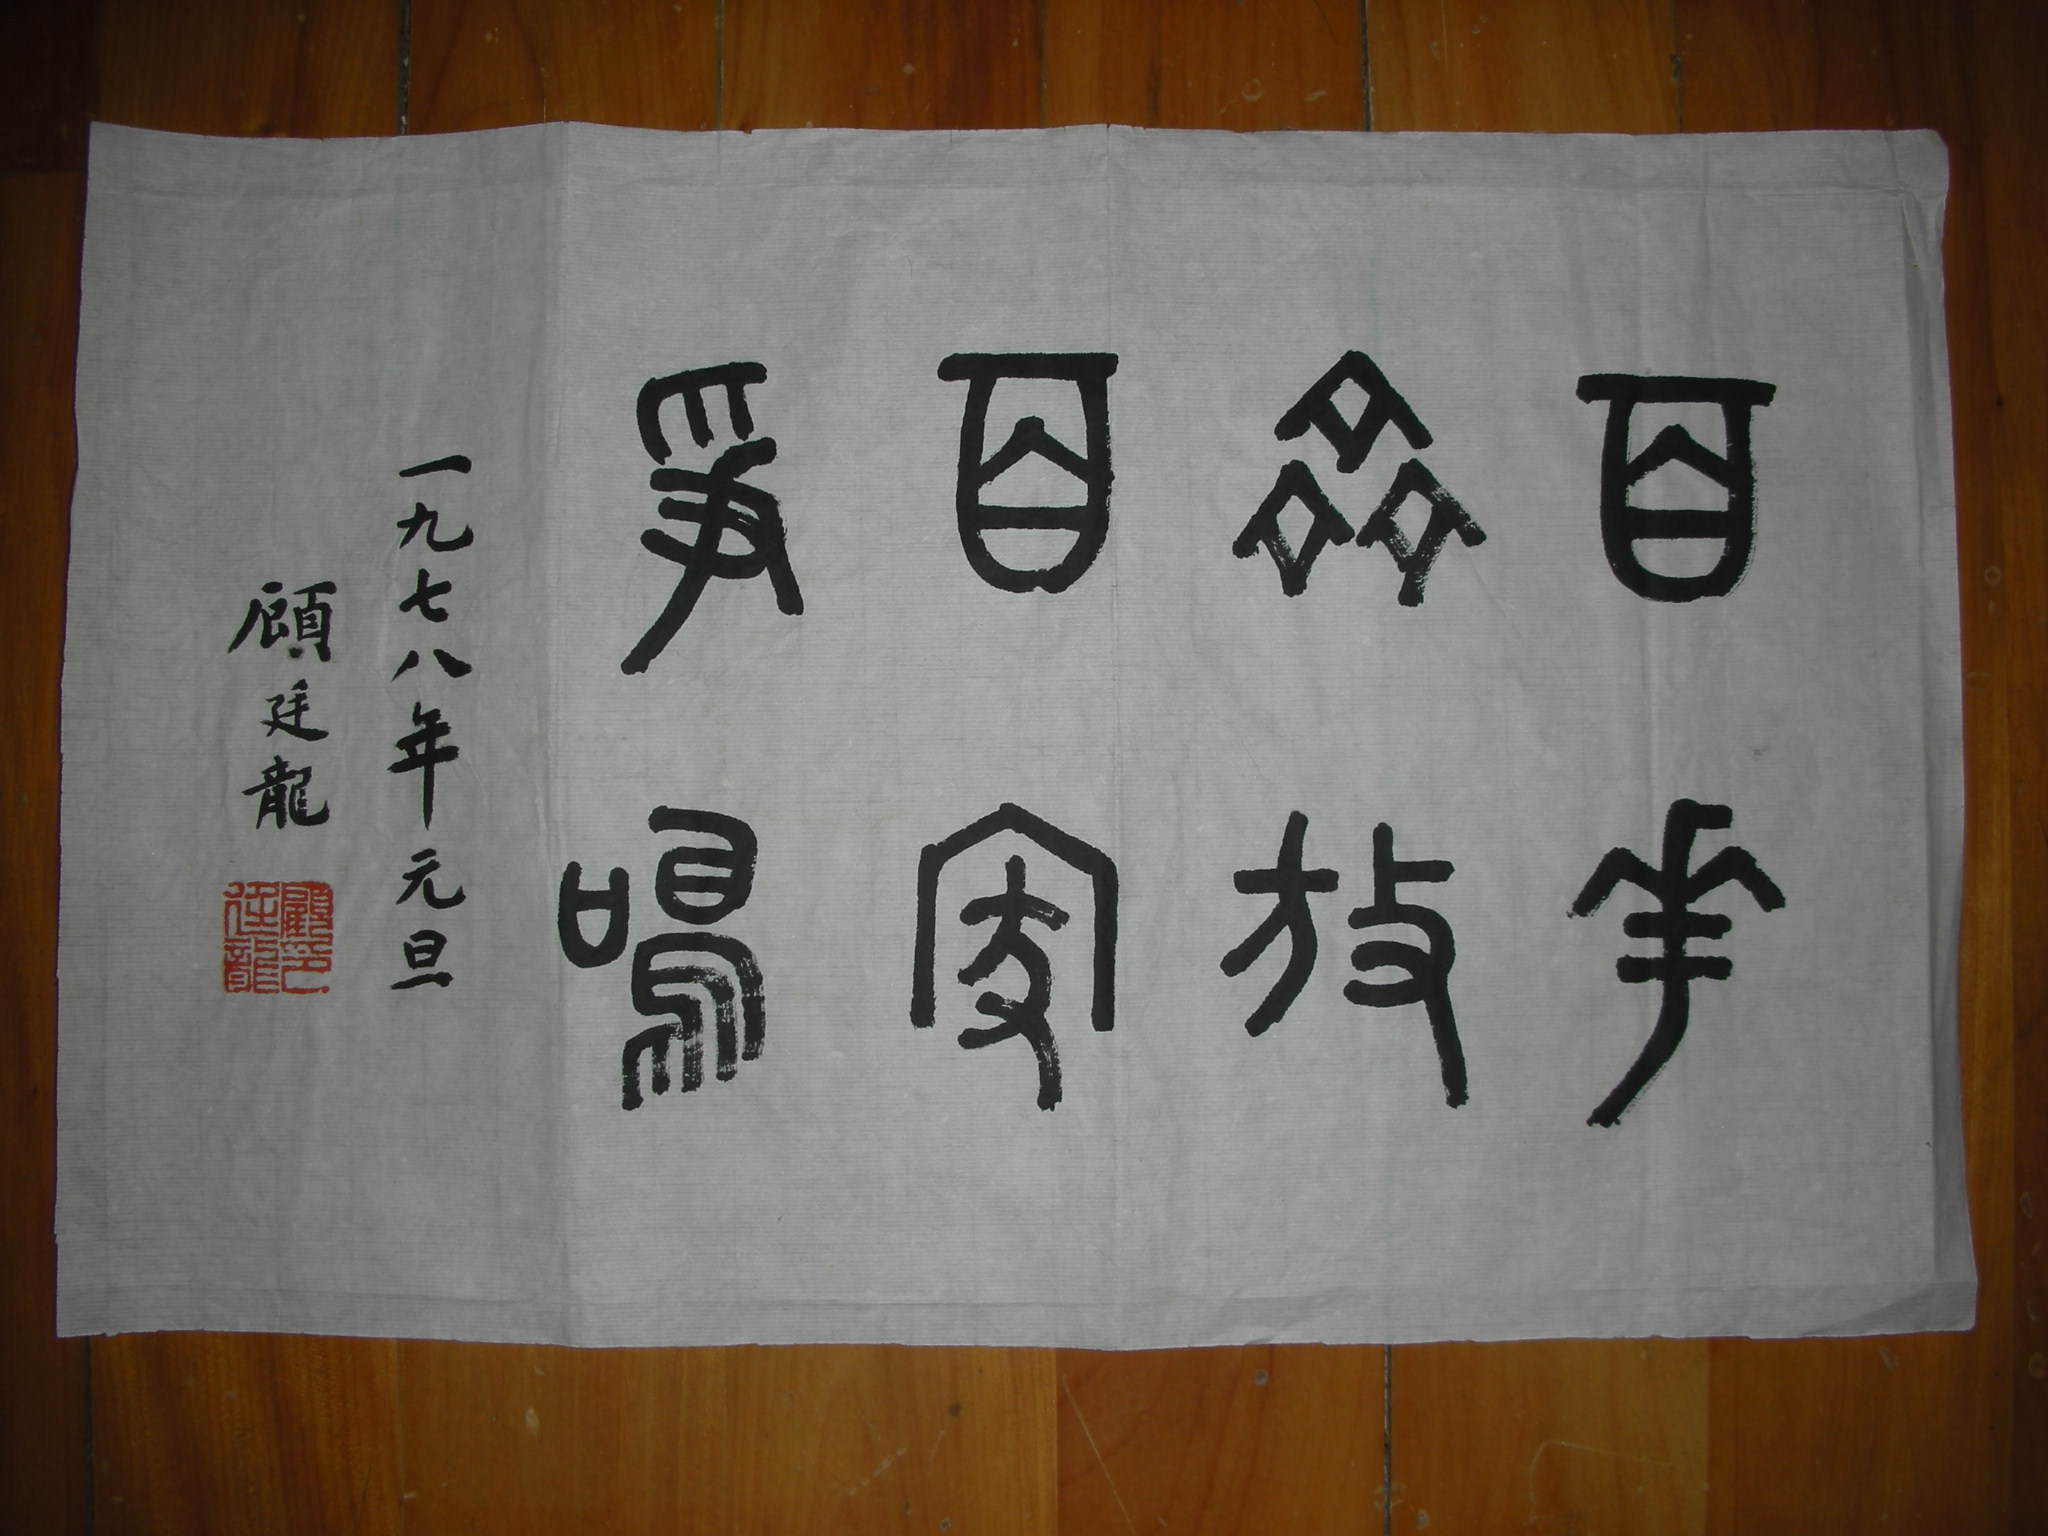 百華
齊放
百家
爭鳴
一九七八年元旦
顧廷龍
顧印
廷龍